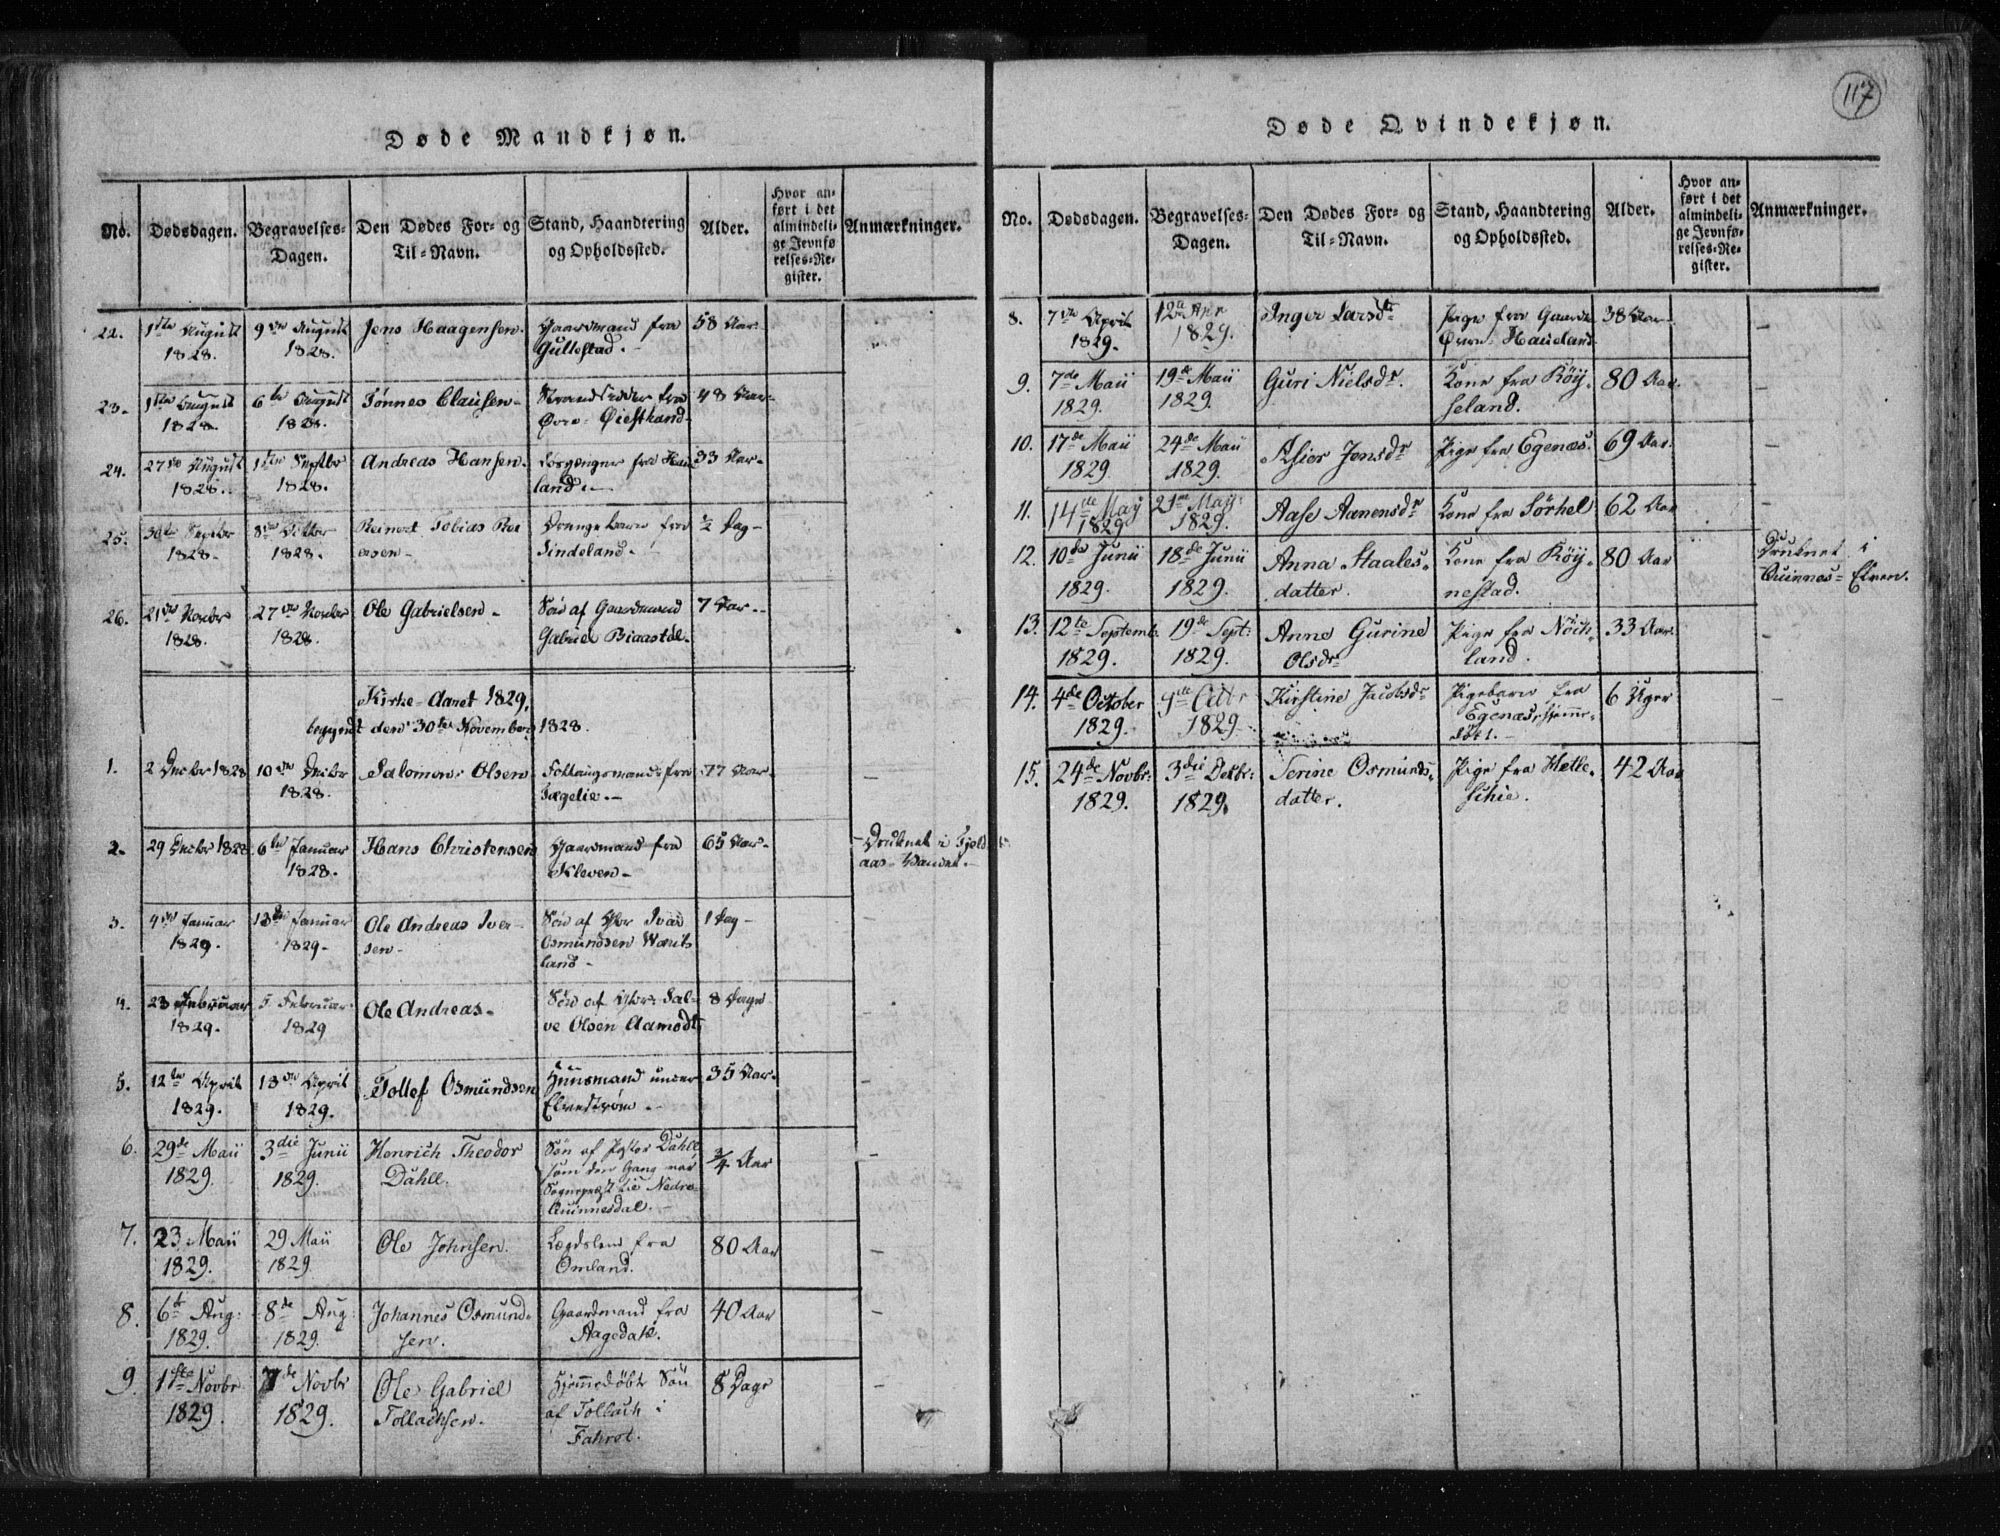 117
Døde Mandkjøn.
No.
Dødsdagen.
Begravelses-
Dagen.
Den Dødes For- og
Til-Navn.
Stand, Haandtering
og Opholdssted.
Alder.
Hvor an-
ført i det
almindeli-
ge Jevnfø-
relses-Re-
gister.
Anmærkninger.
22. 1ste August 9de August Jens Haagensen. Gaardmand fra 58 Aar.
1828. 1828. Gullestad.
23. 1ste August 6te August Tönnes Clausen. 48 Aar.
1828. 1828. Øvre Øiestrand.
24. 27de August 1ste Septbr Andreas Hansen. fra Hau 33 Aar.
1828. 1828. land.
25. 30te Septbr 8de Octbr Reinert Tobias Rei 1/2 Dag
1828. 1828. ersen. Sindeland.
26. 21de Novbr 27de Novbr Ole Gabrielsen. Sön af Gaardmand 7 Aar.
1828. 1828. Gabriel Biaastöl.
Kirke-Aaret 1829,
begyndt den 30te November 1828.
1. 2 Decbr 1828 10de Decbr Salomon Olsen fra 77 Aar.
1828. Jægelie.
2. 29 Decbr 1828 6te Januar Hans Christensen Gaardmand fra 65 Aar. Druknet i Fjeld
1828. Kleven aas-Vandet.
3. 4de Januar 13de Januar Ole Andreas Iver- Sön af Iver 1 Dag
1829. 1829. sen. Osmundsen
land
4. 23 Februar 5 Februar Ole Andreas. Sön af Sal- 8 Dage
1829. 1829 ve Olsen Aamodt
5. 12te April 18de April Tollef Osmundsen Huusmand under 35 Aar.
1829. 1829. Elvestrøm.
6. 29de Maii 3die Junii Henrich Theodor Sön af Pastor Dahll 3/4 Aar
1829. 1829. Dahll. som den Gang var
Sognepræst til Nedre
Quinnesdal.
7. 23 Maii 29 Maii Ole Johnsen. Lægdslem fra 80 Aar
1829. 1829 Omland.
8. 6te Aug: 8de Aug: Johannes Osmund- Gaardmand fra 40 Aar
1829. 1829. sen. Aagedal.
9. 1ste Novbr 7de Novbr Ole Gabriel Hjemmedöbt Sön 8 Dage
1829. 1829. Tollachsen. af Tollach i
Faret.
Døde Qvindekjøn.
No.
Dødsdagen.
Begravelses-
Dagen.
Den Dødes For- og
Til-Navn.
Stand, Haandtering
og Opholdssted.
Alder.
Hvor an-
ført i det
almindeli-
ge Jevnfø-
relses-Re-
gister.
Anmærkninger.
8. 7de April 12te Apr Inger Larsdtr Pige fra Gaarden 38 Aar
1829. 1829. Øvre Haugland
9. 7de Maii 19de Maii Guri Nielsdr. Kone fra Röy- 80 Aar.
1829. 1829. seland.
10. 17de Maii 24de Maii Asier Jensdr Pige fra Egenæs. 69 Aar.
1829 1829.
11. 14de May 21de May: Aase Aanensdr Kone fra Sörhel 62 Aar
1829 1829.
12. 10de Junii 18de Junii Anna Staales- Kone fra Röy- 80 Aar Druknet i
1829. 1829. datter. nestad. Quinnes-Elven.
13. 12te Septemb. 19de Sept: Anne Gurine Pige fra 33 Aar.
1829. 1829. Olsdr land.
14. 4de October 9de Octbr Kirstine Jacobsdr Pigebarn fra 6 Uger
1829. 1829. Egenæs, hjemme-
döbt.
15. 24de Novbr: 3die Decbr: Serine Osmunds- Pige fra Hetle- 42 Aar
1829. 1829. datter. schie.